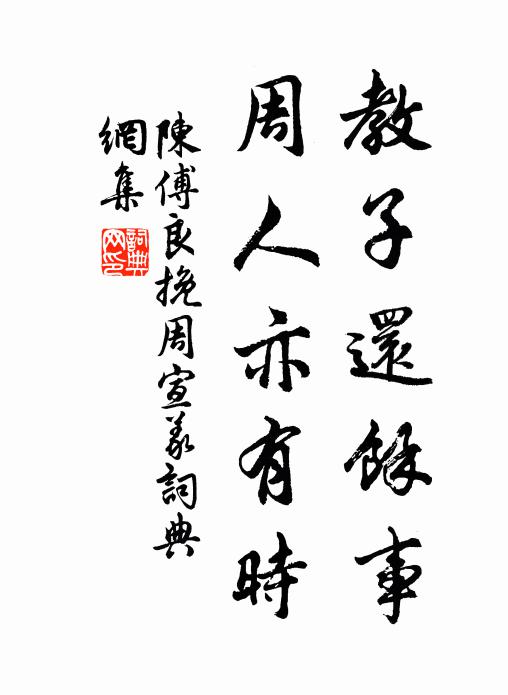 教子還餘事
周人亦有時
陳傅良挽周宣義詞典
網集
詞典
网印